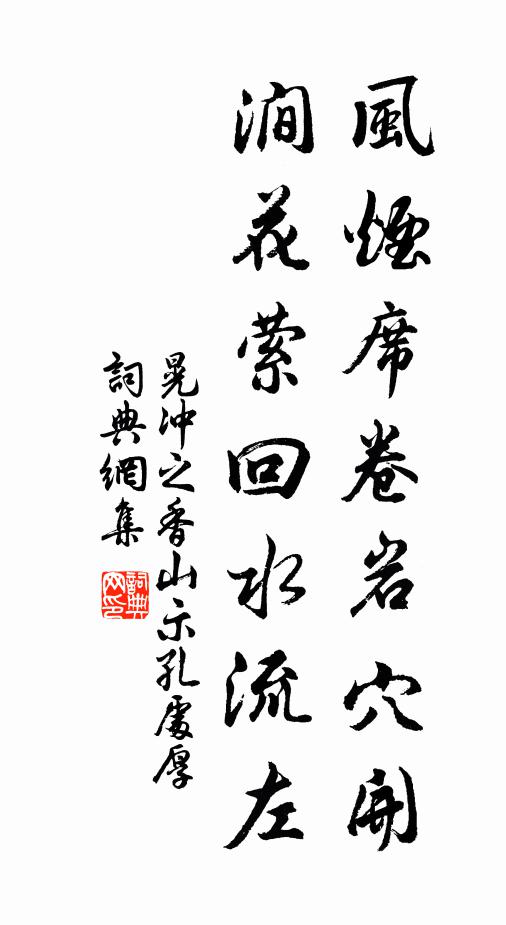 風煙席卷岩穴開
澗花縈回水流左
晁沖之香山示孔處厚
詞典網集
詞典网印